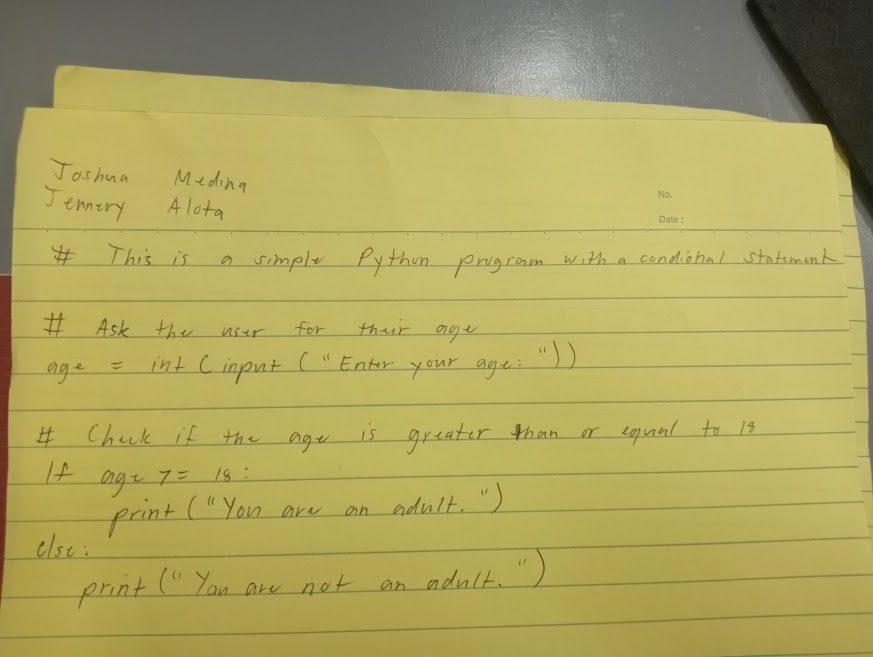 Joshua Medina
Jennery Alota
No.
Date:
# This is a simple Python program with a condional statement
# Ask the user for their age
age = int (input ("Enter your age: "))
# Check if the age is greater than or equal to 18
If age >= 18:
print ("You are an adult.")
else:
print ("You are not an adult.")